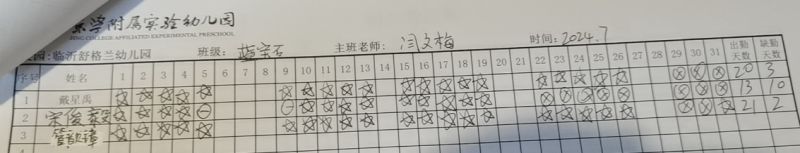 京学附属实验幼儿园
JING COLLEGE AFFILIATED EXPERIMENTAL PRESCHOOL
园:临沂舒格兰幼儿园 班级: 蓝宝石 主班老师: 闫文梅 时间: 2024.7
序号 姓名 1 2 3 4 5 6 7 8 9 10 11 12 13 14 15 16 17 18 19 20 21 22 23 24 25 26 27 28 29 30 31 出勤天数 缺勤天数
1 戴星禹 ☆ ☆ ☆ ☆ ☆ ☆ ☆ ☆ ☆ ☆ ☆ ☆ ☆ ☆ ☆ ☆ ☆ ☆ ☆ ☆ ⊗ ⊗ ⊗ 20 3
2 宋俊 ☆ ☆ ☆ ☆ ⊖ ⊖ ☆ ☆ ☆ ☆ ☆ ☆ ☆ ☆ ☆ ⊗ ⊗ ⊗ ⊗ ⊗ ⊗ ⊗ ⊗ 13 10
3 管 ☆ ☆ ☆ ☆ ☆ ☆ ☆ ☆ ☆ ☆ ☆ ☆ ☆ ☆ ☆ ☆ ☆ ☆ ☆ ☆ ⊗ ⊗ ☆ 21 2